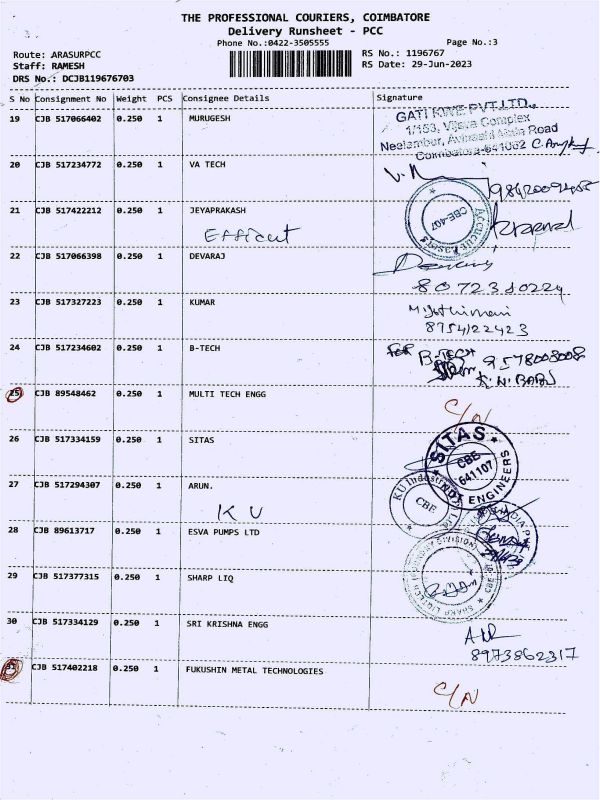 THE PROFESSIONAL COURIERS, COIMBATORE
Delivery Runsheet - PCC
Phone No.:0422-3505555 Page No.:3
Route: ARASURPCC RS No.: 1196767
Staff: RAMESH RS Date: 29-Jun-2023
DRS No.: DCJB119676703
S No Consignment No Weight PCS Consignee Details Signature
19 CJB 517066402 0.250 1 MURUGESH
GATI KWE PVT.LTD.,
1/153, Vijaya Complex
Neelambur, Avinashi Main Road
Coimbatore-641062
20 CJB 517234772 0.250 1 VA TECH
21 CJB 517422212 0.250 1 JEYAPRAKASH
CBE-407
22 CJB 517066398 0.250 1 DEVARAJ
8072380224
23 CJB 517327223 0.250 1 KUMAR
8754122423
24 CJB 517234602 0.250 1 B-TECH
For B-TECH 9578003008
K.N.BABU
25 CJB 89548462 0.250 1 MULTI TECH ENGG
C/N
26 CJB 517334159 0.250 1 SITAS
SITAS
NDT ENGINEERS
CBE
641107
27 CJB 517294307 0.250 1 ARUN.
KU
KU Industries
CBE
28 CJB 89613717 0.250 1 ESVA PUMPS LTD
29 CJB 517377315 0.250 1 SHARP LIQ
30 CJB 517334129 0.250 1 SRI KRISHNA ENGG
8973862317
31 CJB 517402218 0.250 1 FUKUSHIN METAL TECHNOLOGIES
C/N